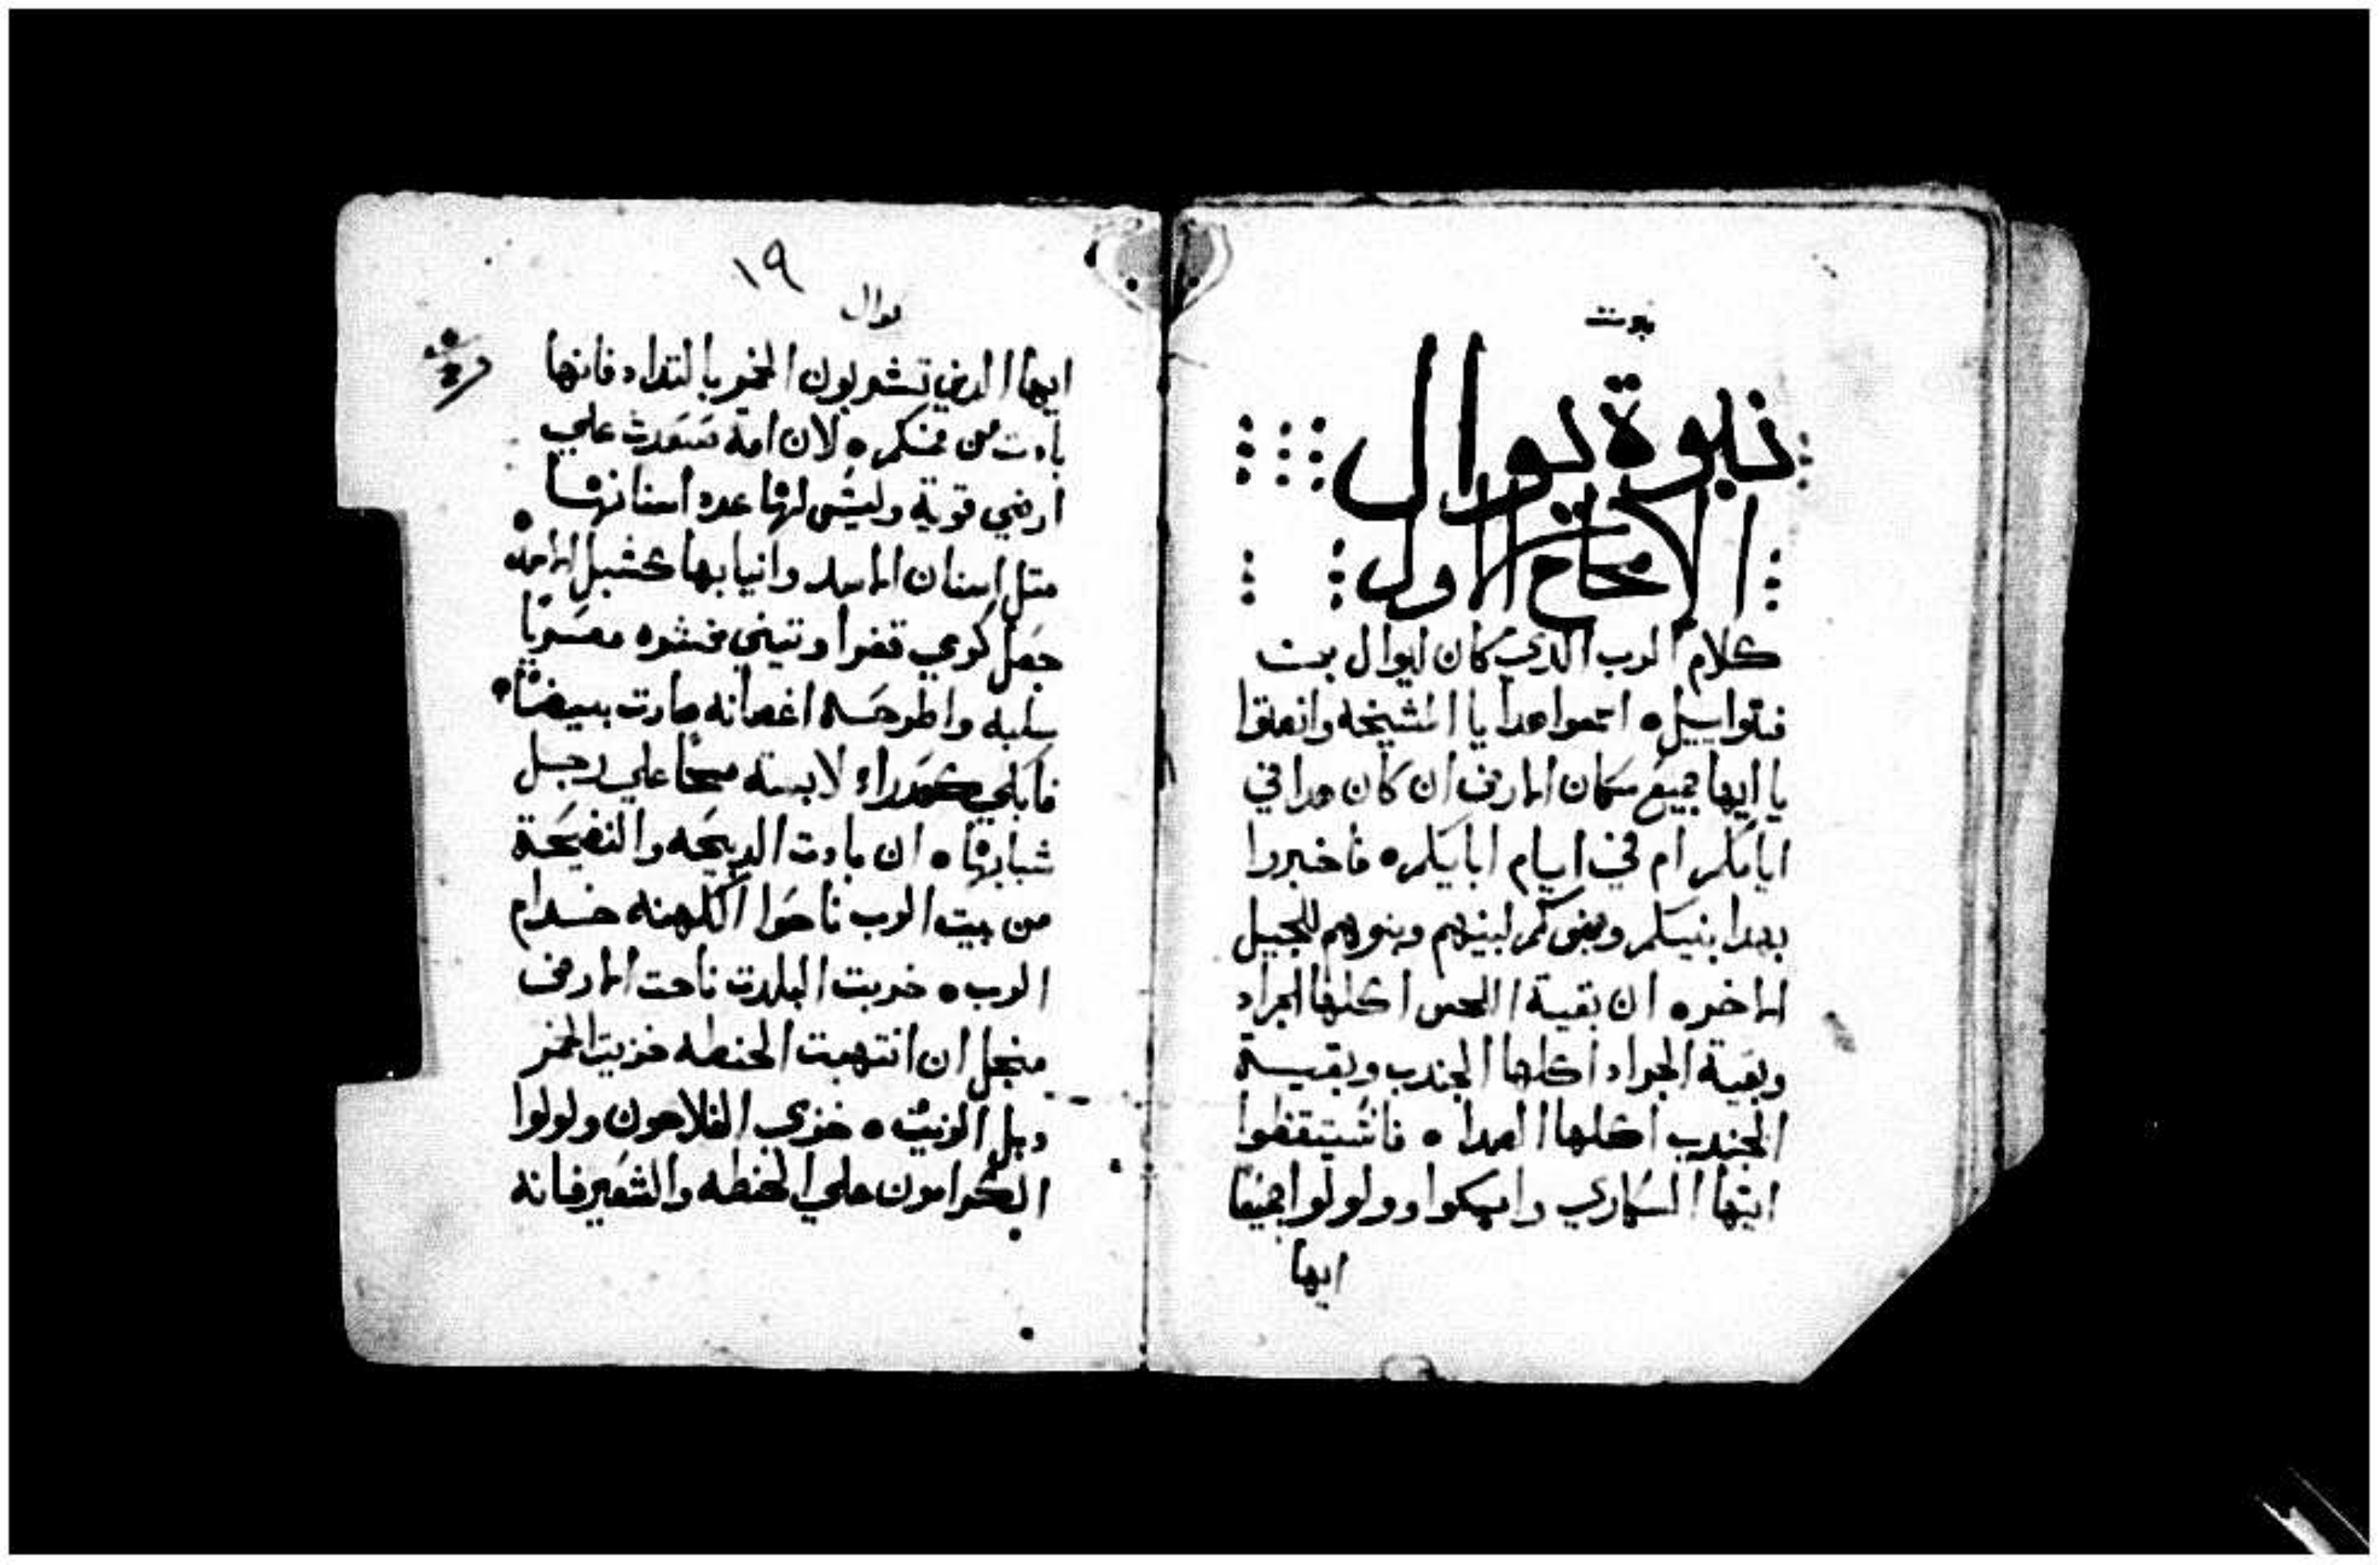 نبوت
نبوة يوال
الاصحاح الاول
كلام الرب الدي كان ليوال بن
فتواييل ه اسمعوا هدا يا المشيخه وانصتوا
يا ايها جميع سكان الارض ان كان هدا في
ايامكم ام في ايام ابايكم ه فاخبروا
بهدا بنيكم وبنوكم لبنيهم وبنوهم للجيل
الاخر ه ان بقية اللحس اكلها الجراد
وبقية الجراد اكلها الجندب وبقية
الجندب اكلها الصدا ه فاستيقظوا
ايها السكاري وابكوا وولولوا جميعا
ايها
١٩
يوال
ايها الدين تشربون الخمر بالتداد فانها
بادت من فمكم ه لان امة صعدت علي
ارضي قوية وليس لها عدد اسنانها
متل اسنان الاسد وانيابها كشبل الاسد
جعل كرمي قفرا وتيني قشره معريا
سلبه واطرحه اغصانه صارت بيضا
فابكي كعدراء لابسة مسحا علي رجل
شبابها ه ان بادت الدبيحه والنضيحة
من بيت الرب ناحوا الكهنه خدام
الرب ه خربت البلدت ناحت الارض
منجل ان انتهبت الحنطه خزيت الخمر
دبل الزيت ه خزي الفلاحون ولولوا
الكرامون علي الحنطه والشعير فانه